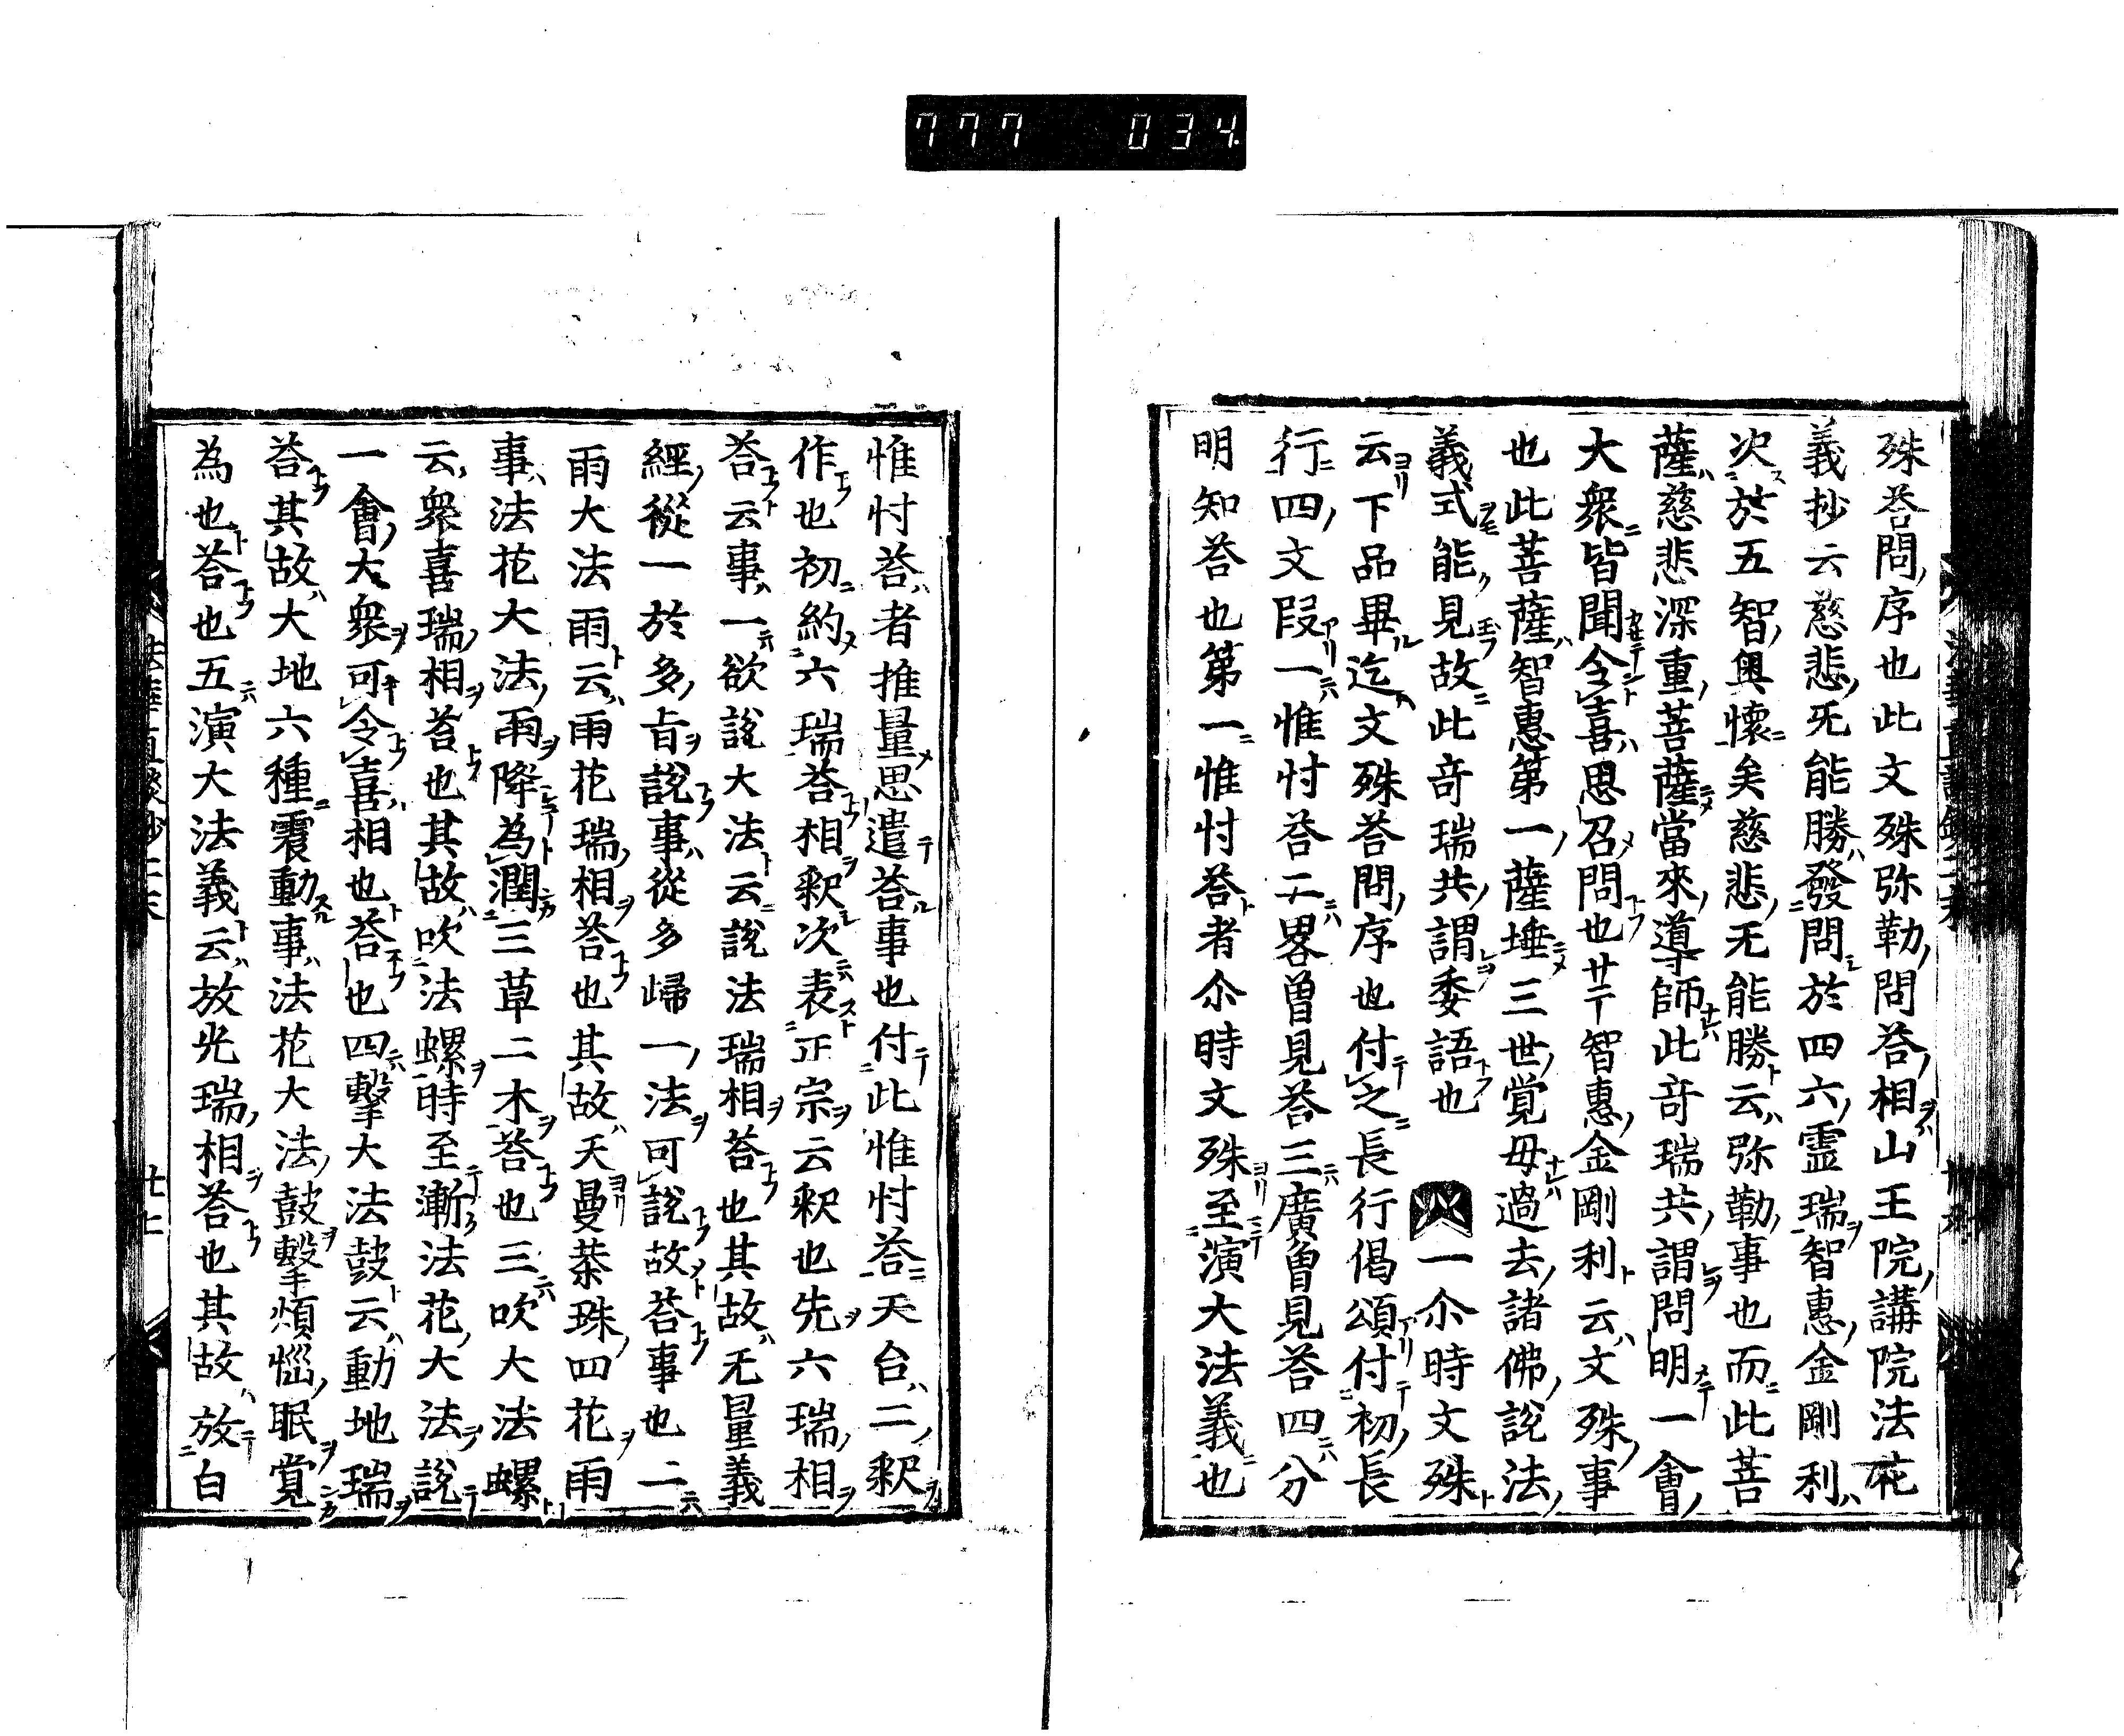 777 034
殊荅問序也此文殊弥勒問荅相山王院講院法花
義抄云慈悲旡能勝發問於四六霊瑞智惠金剛利
次於五智奥懷矣慈悲旡能勝云弥勒事也而此菩
薩慈悲深重菩薩當來導師此竒瑞共謂問明一會
大衆皆聞令喜思召問也廿丁智惠金剛利云文殊事
也此菩薩智惠第一薩埵三世覚母過去諸佛說法
義式能見故此竒瑞共謂委語也 一尒時文殊
云下品畢迄文殊荅問序也付之長行偈頌付初長
行四文段一惟忖荅二畧曽見荅三廣曽見荅四分
明知荅也第一惟忖荅者尒時文殊至演大法義也
惟忖荅者推量思遣荅事也付此惟忖荅天台二釈
作也初約六瑞荅相釈次表正宗云釈也先六瑞相
荅云事一欲說大法云說法瑞相荅也其故旡量義
經從一於多㫖說事從多歸一法可說故荅事也二
雨大法雨云雨花瑞相荅也其故天曼荼珠四花雨
事法花大法雨降為潤三草二木荅也三吹大法螺
云衆喜瑞相荅也其故吹法螺時至漸法花大法說
一會大衆可令喜相也荅也四擊大法鼓云動地瑞
荅其故大地六種震動事法花大法鼓擊煩惱眠覚
為也荅也五演大法義云放光瑞相荅也其故放白